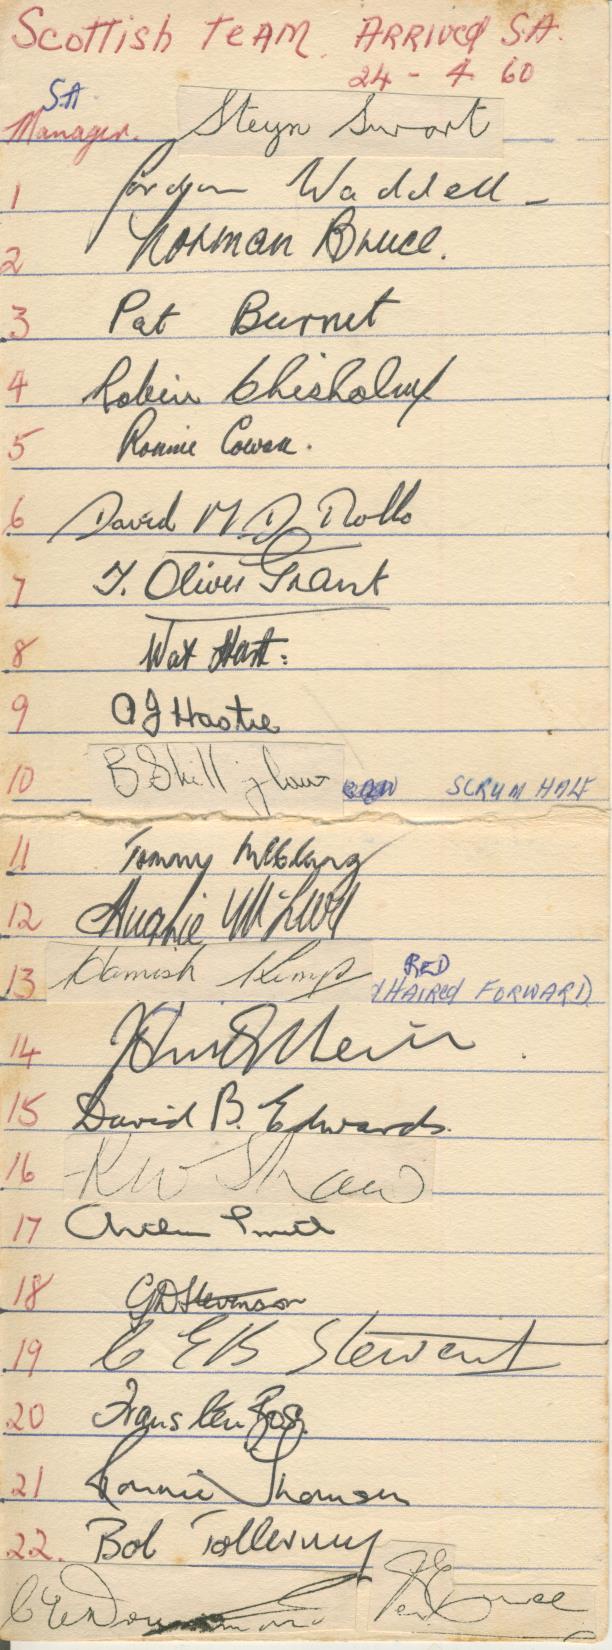 Scottish TEAM. ARRIVED S.A.
24 - 4 60
SA
Manager. Steyn Swart
1 Gordon Waddell
2 Norman Bruce.
3 Pat Burnet
4 Robin Chisholm
5 Ronnie Cowan.
6 David M. D. Rollo
7 T. Oliver Grant
8 Wat Hart:
9 A J Hastie
10 B Shillinglaw SCRUM HALF
11 Tommy McClung
12 Hughie McLeod
13 Hamish Kemp RED
HAIRED FORWARD
14
15 David B. Edwards.
16 R W Shaw
17 Arthur Smith
18 G D Stevenson
19 C E B Stewart
20 Frans ten Bos.
21 Ronnie Thomson
22. Bob Tollervey